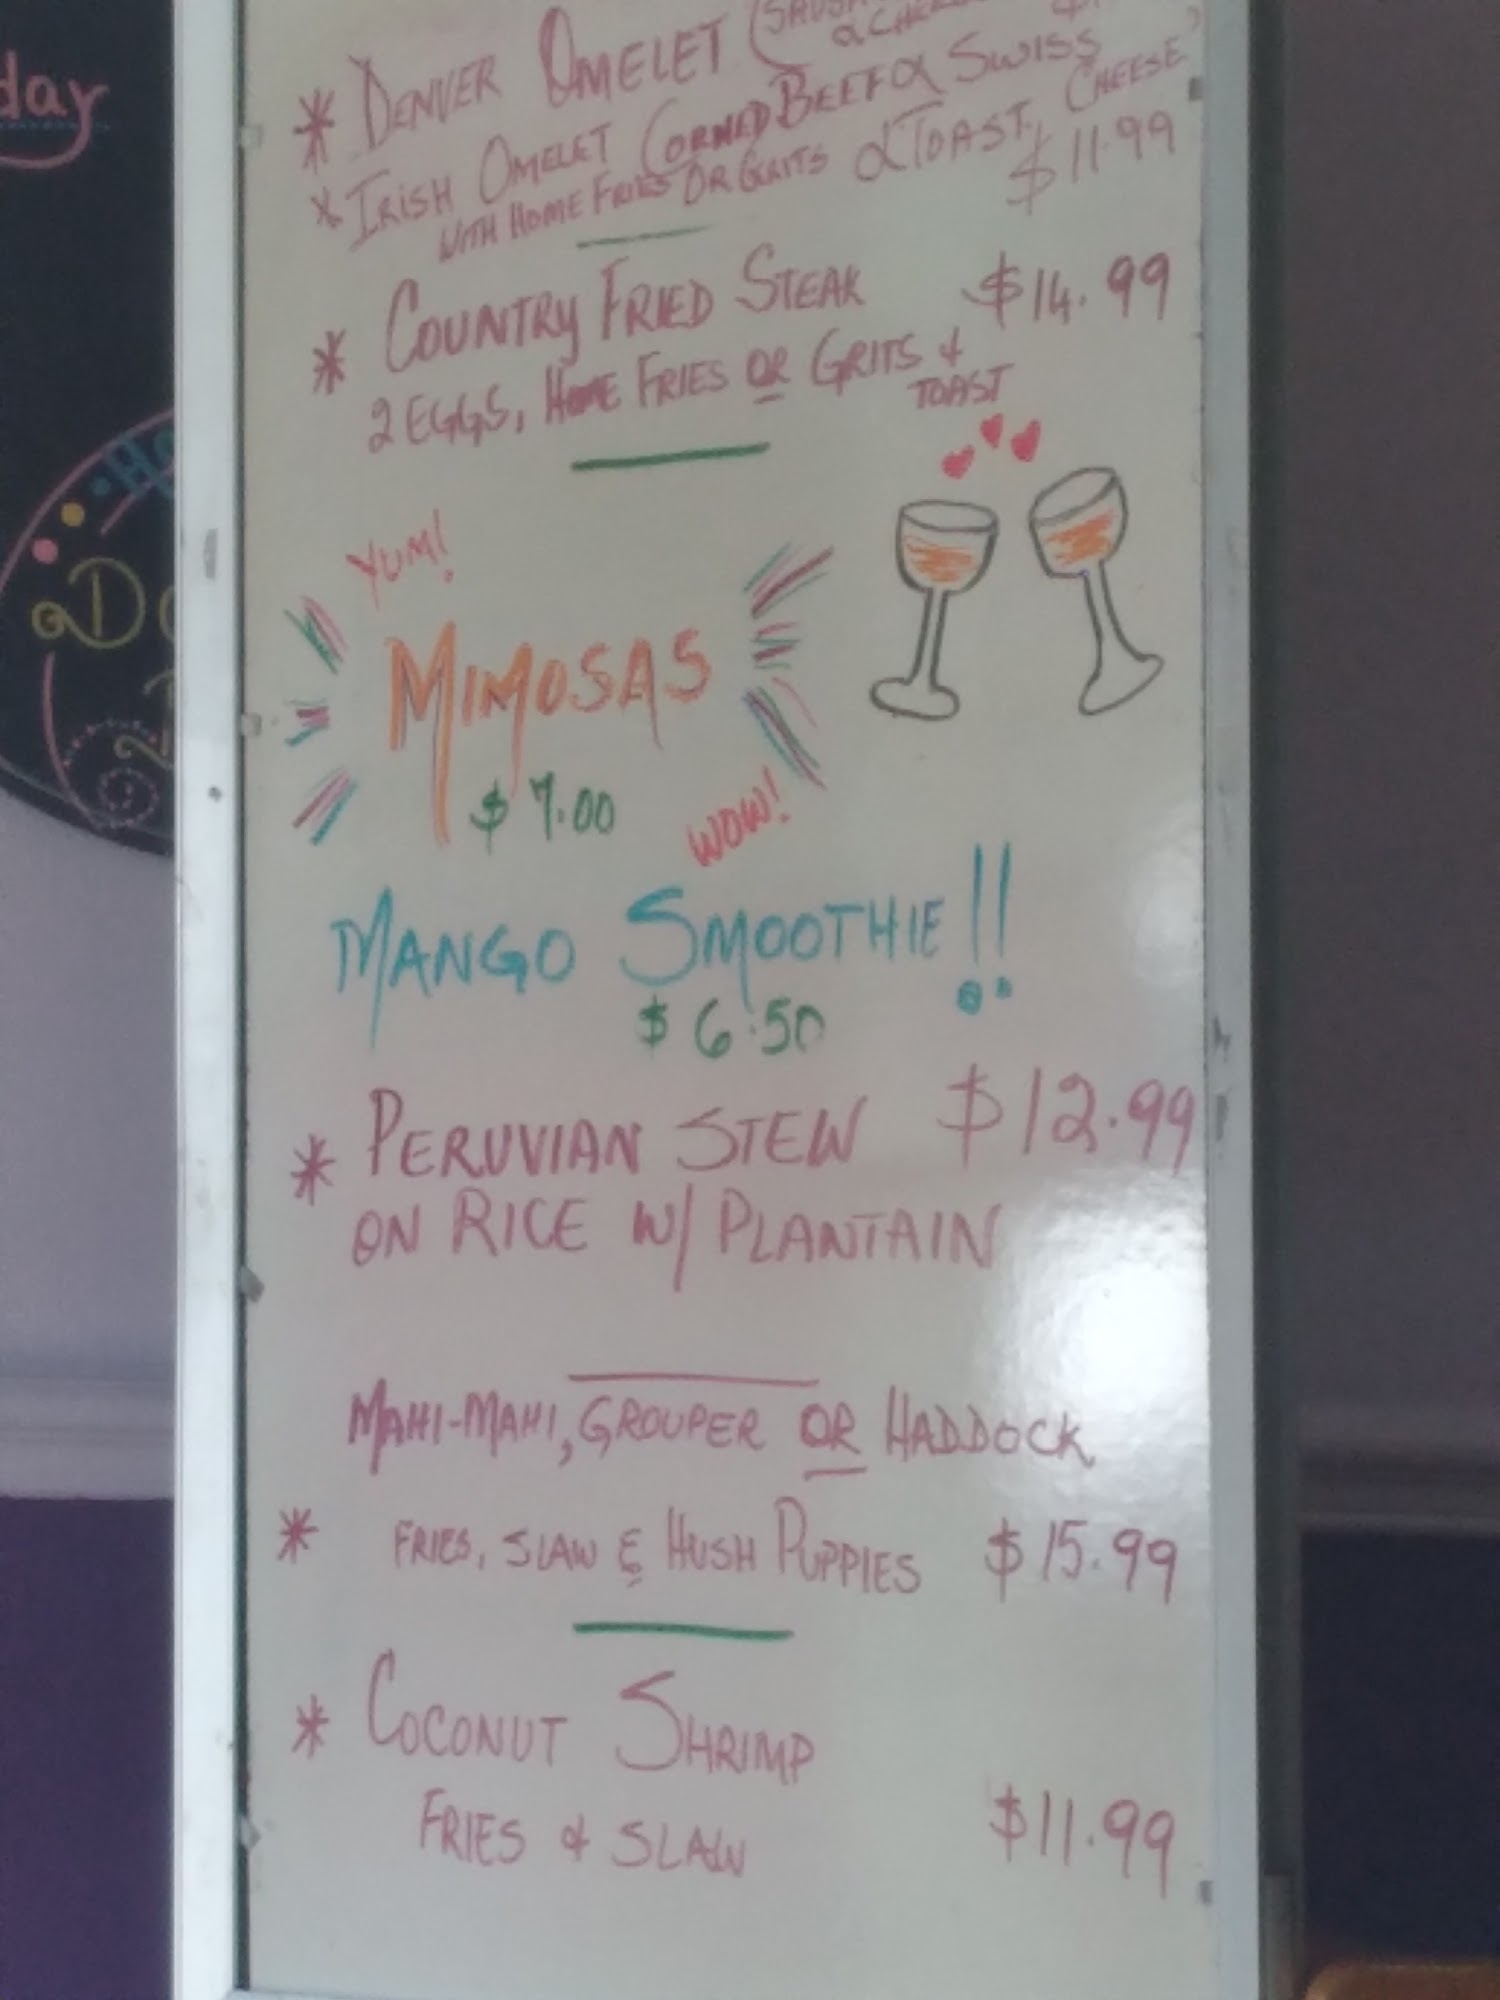 day
* DENVER OMELET
* IRISH OMELET CORNED BEEF & SWISS CHEESE
WITH HOME FRIES OR GRITS & TOAST $11.99
* COUNTRY FRIED STEAK $14.99
2 EGGS, HOME FRIES OR GRITS &
TOAST
YUM!
MIMOSAS
$7.00
WOW!
MANGO SMOOTHIE!!
$6.50
* PERUVIAN STEW $12.99
ON RICE W/ PLANTAIN
MAHI-MAHI, GROUPER OR HADDOCK
* FRIES, SLAW & HUSH PUPPIES $15.99
* COCONUT SHRIMP
FRIES & SLAW $11.99